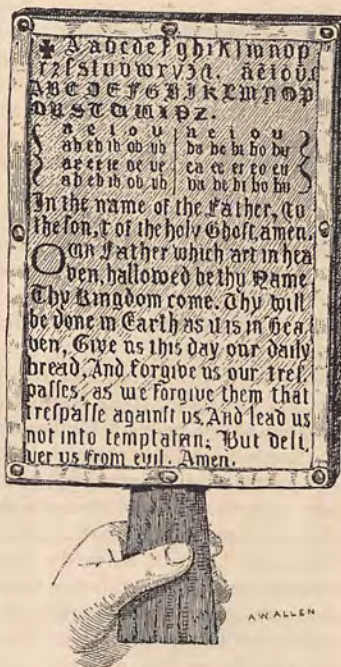 ✠ A a b c d e f g h i k l m n o p
r z s ſ t u v w x y z a. ā ē i ō ū.
A B C D E F G H I K L M N O P
Q R S T U W X Y Z.
a e i o u | a e i o u
ab eb ib ob ub | ba be bi bo bu
ca ce ci co cu
ab eb ib ob ub | da de di bo bu
In the name of the Father,
the son, & of the holy Ghoſt, amen.
Our Father which art in hea
ven, hallowed be thy Name
Thy Kingdom come. Thy will
be done in Earth as it is in Hea
ven, Give us this day our daily
bread, And forgive us our treſ
paſſes, as we forgive them that
treſpaſſe againſt us, And lead us
not into temptatan; But deli
ver us from evil. Amen.
A W ALLEN